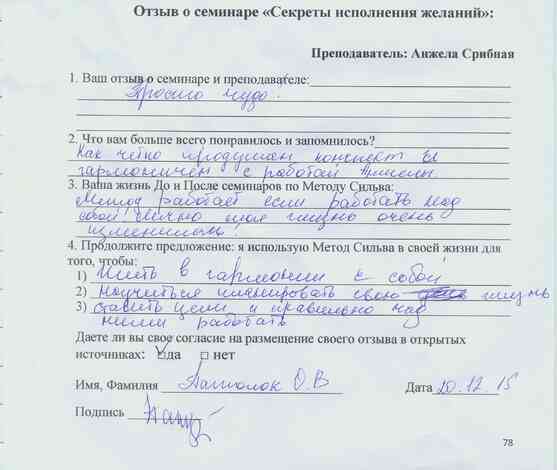 Отзыв о семинаре «Секреты исполнения желаний»:
Преподаватель: Анжела Срибная
1. Ваш отзыв о семинаре и преподавателе:
Просто чудо!
2. Что вам больше всего понравилось и запомнилось?
Как чётко продуман конспект и
гармоничен с работой
3. Ваша жизнь До и После семинаров по Методу Сильва:
Метод работает если работать над
собой моя жизнь очень
изменилась!
4. Продолжите предложение: я использую Метод Сильва в своей жизни для
того, чтобы:
1) Жить в гармонии с собой
2) Научиться планировать свою жизнь
3) Ставить цели и правильно над
ними работать
Даете ли вы свое согласие на размещение своего отзыва в открытых
источниках: ☑да □ нет
Имя, Фамилия О.В Дата 20.12.15
Подпись
78